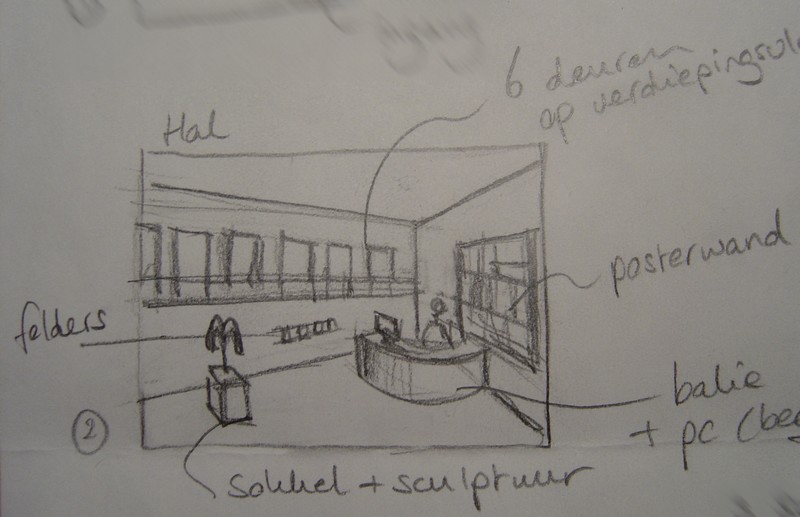 6 deuren
op verdiepingsvl
Hal
posterwand
folders
balie
+ pc (be
2
Sokkel + sculptuur